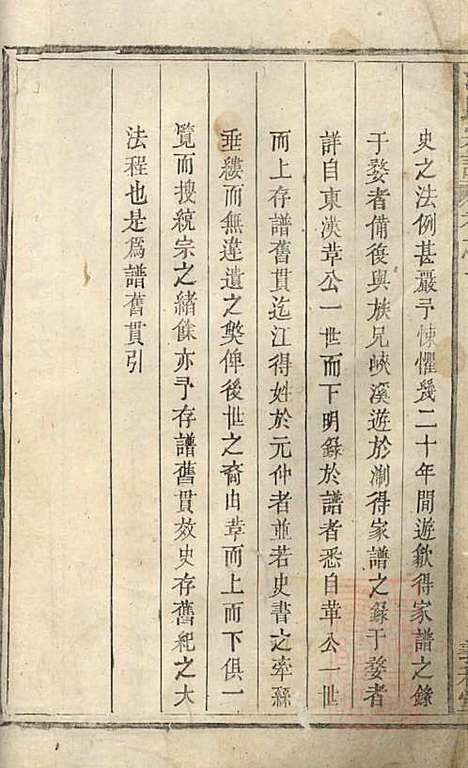 史之法例甚嚴予悚懼幾二十年間遊歙得家譜之錄
于婺者備復與族兄峽溪遊於淛得家譜之錄于婺者
詳自東漢華公一世而下明錄於譜者悉自華公一世
而上存譜舊貫迄江得姓於元仲者並若史書之牽繇
垂縷而無違遺之獘俾後世之裔由華而上而下俱一
覽而搜統宗之緒餘亦予存譜舊貫效史存舊紀之大
法程也是為譜舊貫引